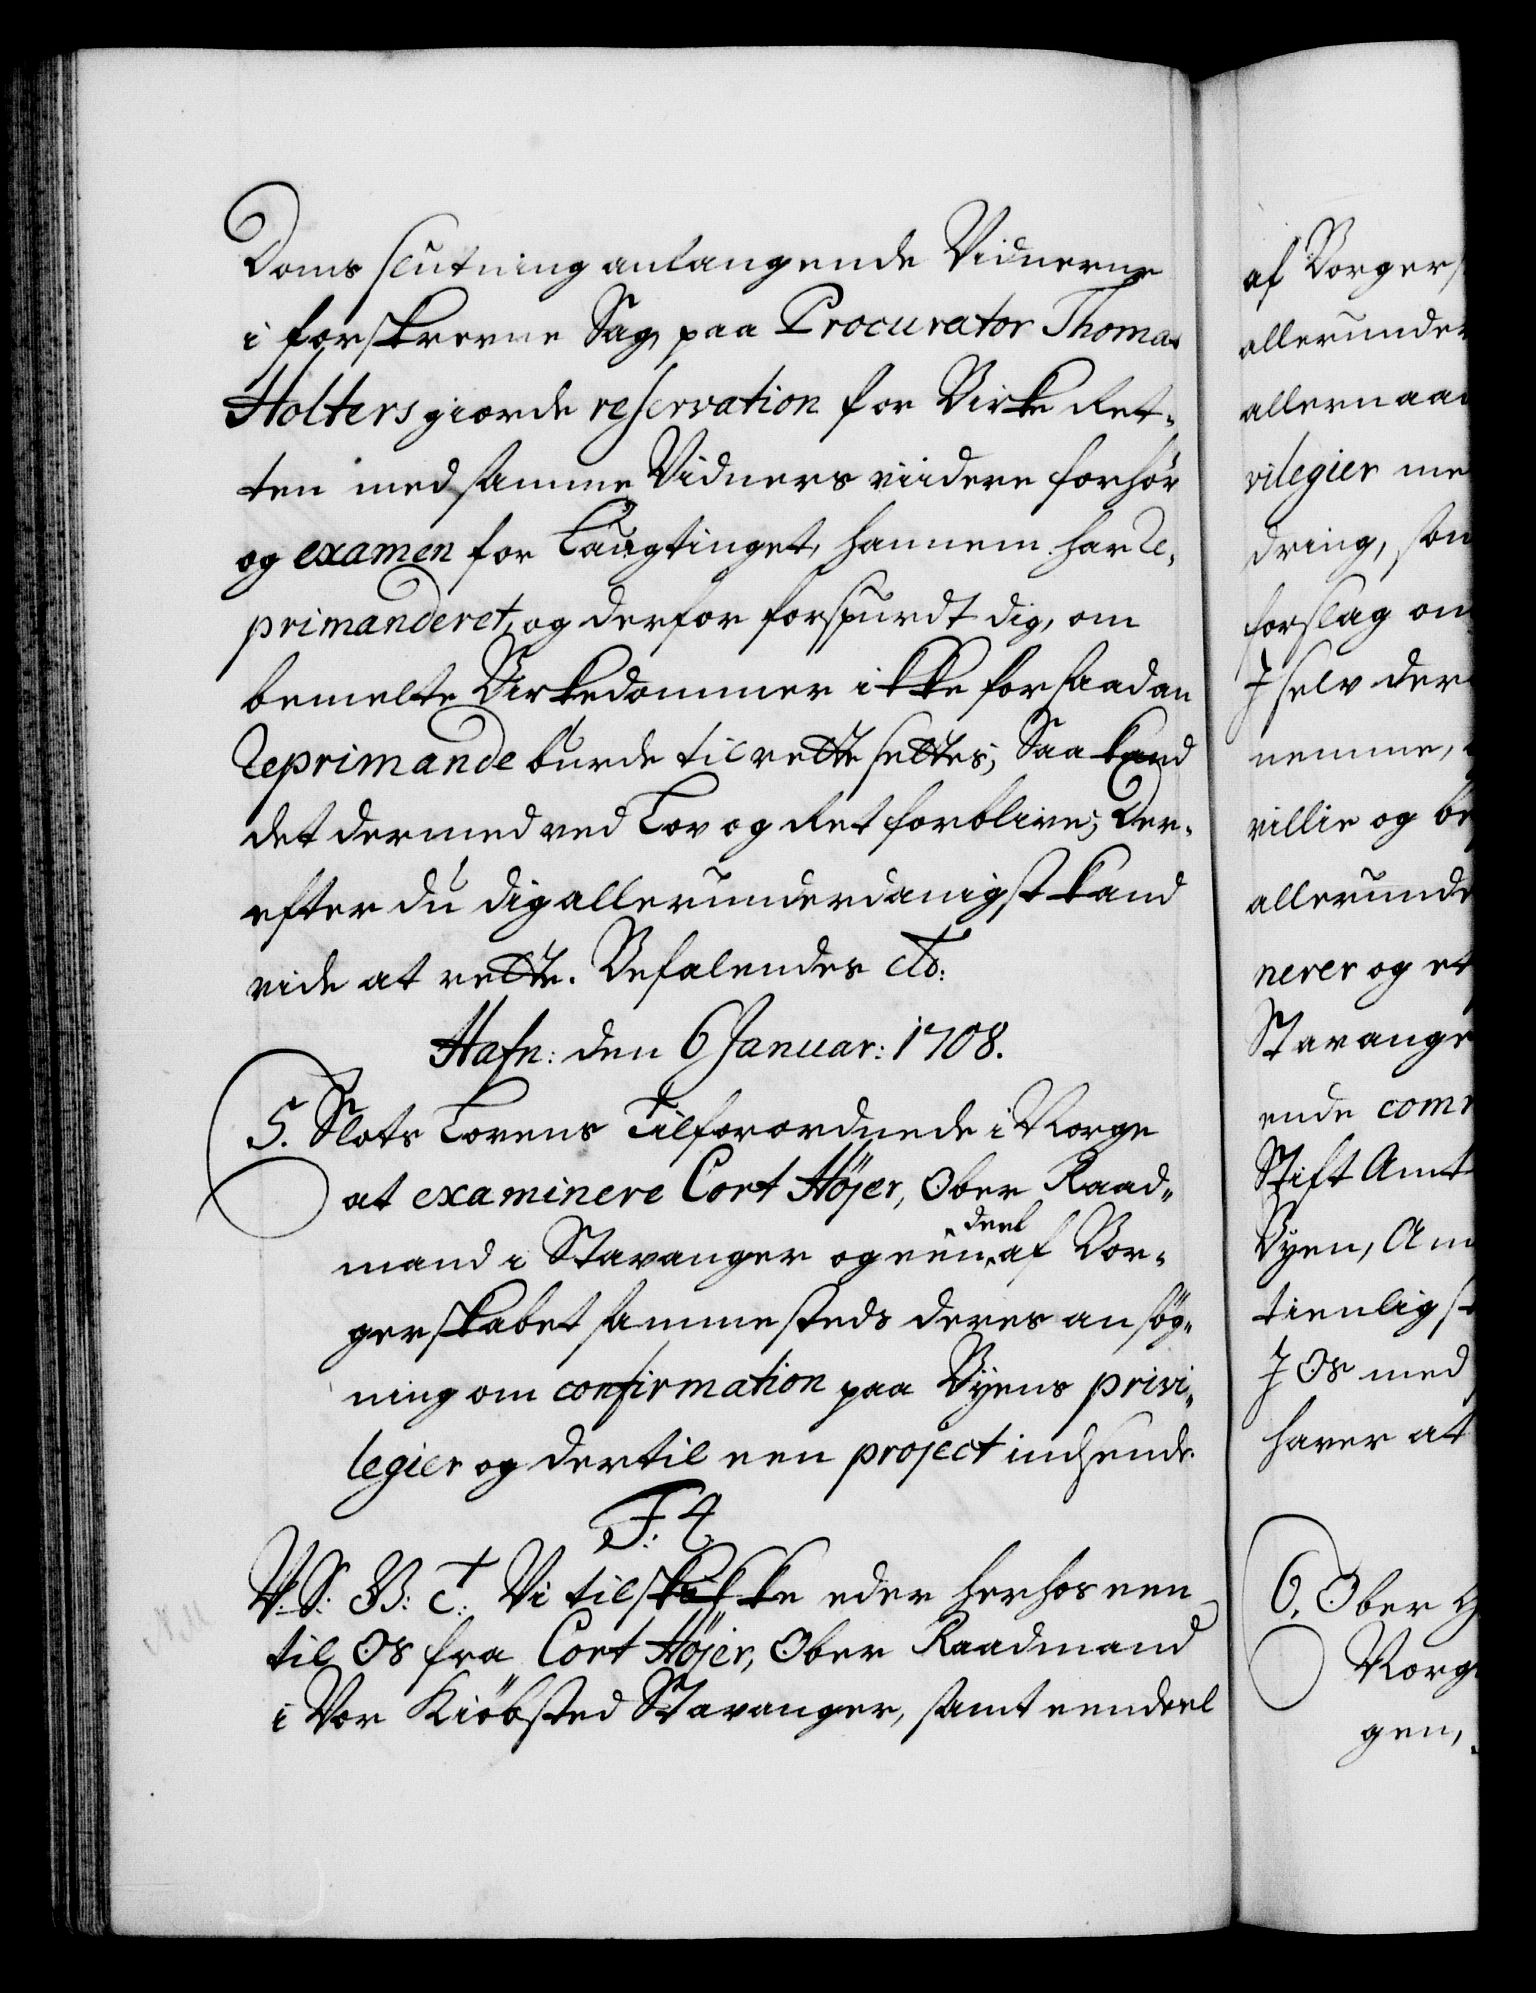 Doms slutning anlangende Vidnerne
i forskrevne Sag, paa Procurator Thomas
Holters giorde reservation for Birke Ret-
ten med samme Vidners viidere forhør
og examen for Laugtinget, hannem har Re-
primanderet, og derfor forspurdt dig, om
bemelte Birkedommer ikke for saadan
Reprimande burde til rette settes; Saa kand
det dermed ved Lov og Ret forblive; Der-
efter du dig allerunderdanigst kand
vide at rette. Befalendes etc:
Hafn: den 6 Januar: 1708.
5. Slots Lovens Tilforordnede i Norge
at examinere Cort Højer, Ober Raad-
mand i Stavanger og een deel af Bor-
gerskabet sammesteds deres ansøg-
ning om confirmation paa Byens privi-
legier og dertil een project indsende.
F: 4.
V: S: B: et: Vi tilskikke eder herhos een
til Os fra Cort Höjer, Ober Raadmand
i Vor Kiöbsted Stavanger, samt eendeel
af Borgers
allerunder
allernaad
vilegier me
dring, som
forslag om
I selv der
nemme,
villie og be
allerunde
nerer og et
Stavange
ende comm
Stift Amt
Byen, Am
tienligst
I Os med
haver at
6. Ober
Norge
gen,